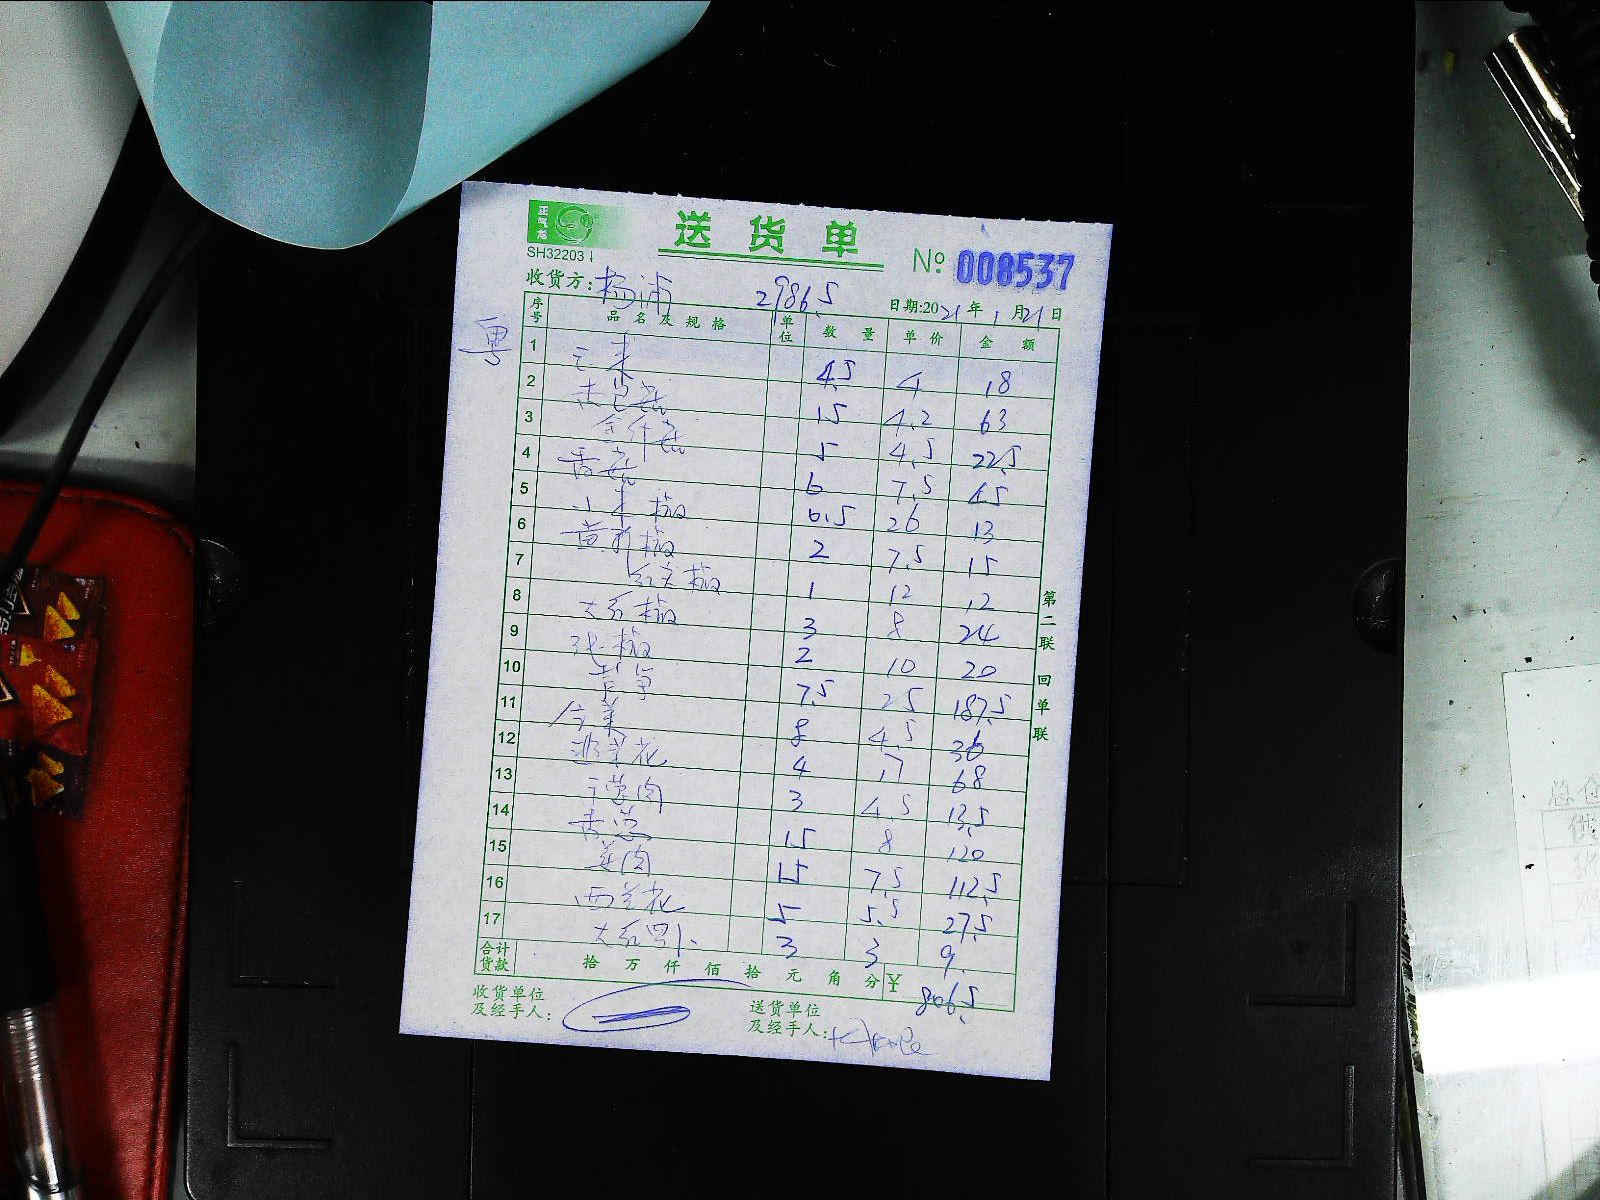 正气龙
送货单
SH32203
№ 008537
收货方: 杨浦 2986.5 日期:2021年1月21日
粤
序号 品名及规格 单位 数量 单价 金额
1 玉米 4.5 4 18
2 杏包菇 15 4.2 63
3 金针菇 5 4.5 22.5
4 香菇 6 7.5 45
5 小米椒 0.5 26 13
6 黄彩椒 2 7.5 15
7 红尖椒 1 12 12
8 大红椒 3 8 24
9 椒 2 10 20
10 7.5 25 187.5
11 8 4.5 36
12 花 4 17 68
13 肉 3 4.5 13.5
14 香葱 15 8 120
15 姜肉 15 7.5 112.5
16 西兰花 5 5.5 27.5
17 大红罗卜 3 3 9
合计货款 拾 万 仟 佰 拾 元 角 分 ¥ 806.5
收货单位及经手人:
送货单位及经手人:
第二联 回单联
总仓